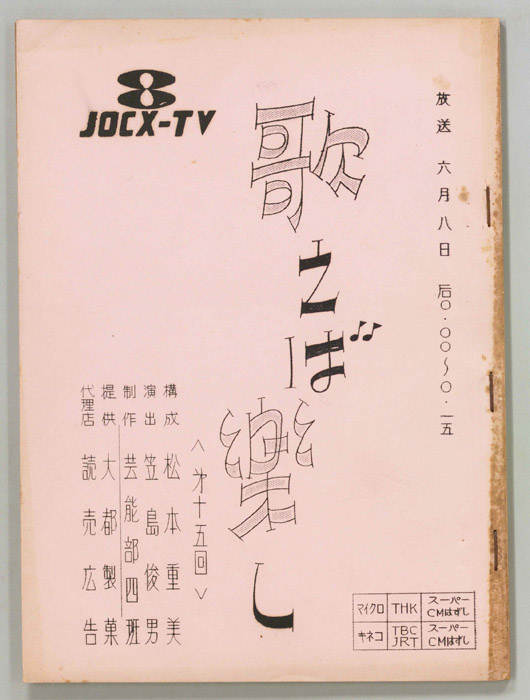 8
JOCX-TV
放送 六月八日 后0.00〜0.一五
歌えば楽し
〈才十五回〉
構成 松本重美
演出 笠島俊男
制作 芸能部四班
提供 大都製菓
代理店 読売広告
マイクロ THK スーパー CMはずし
キネコ TBC JRT スーパー CMはずし